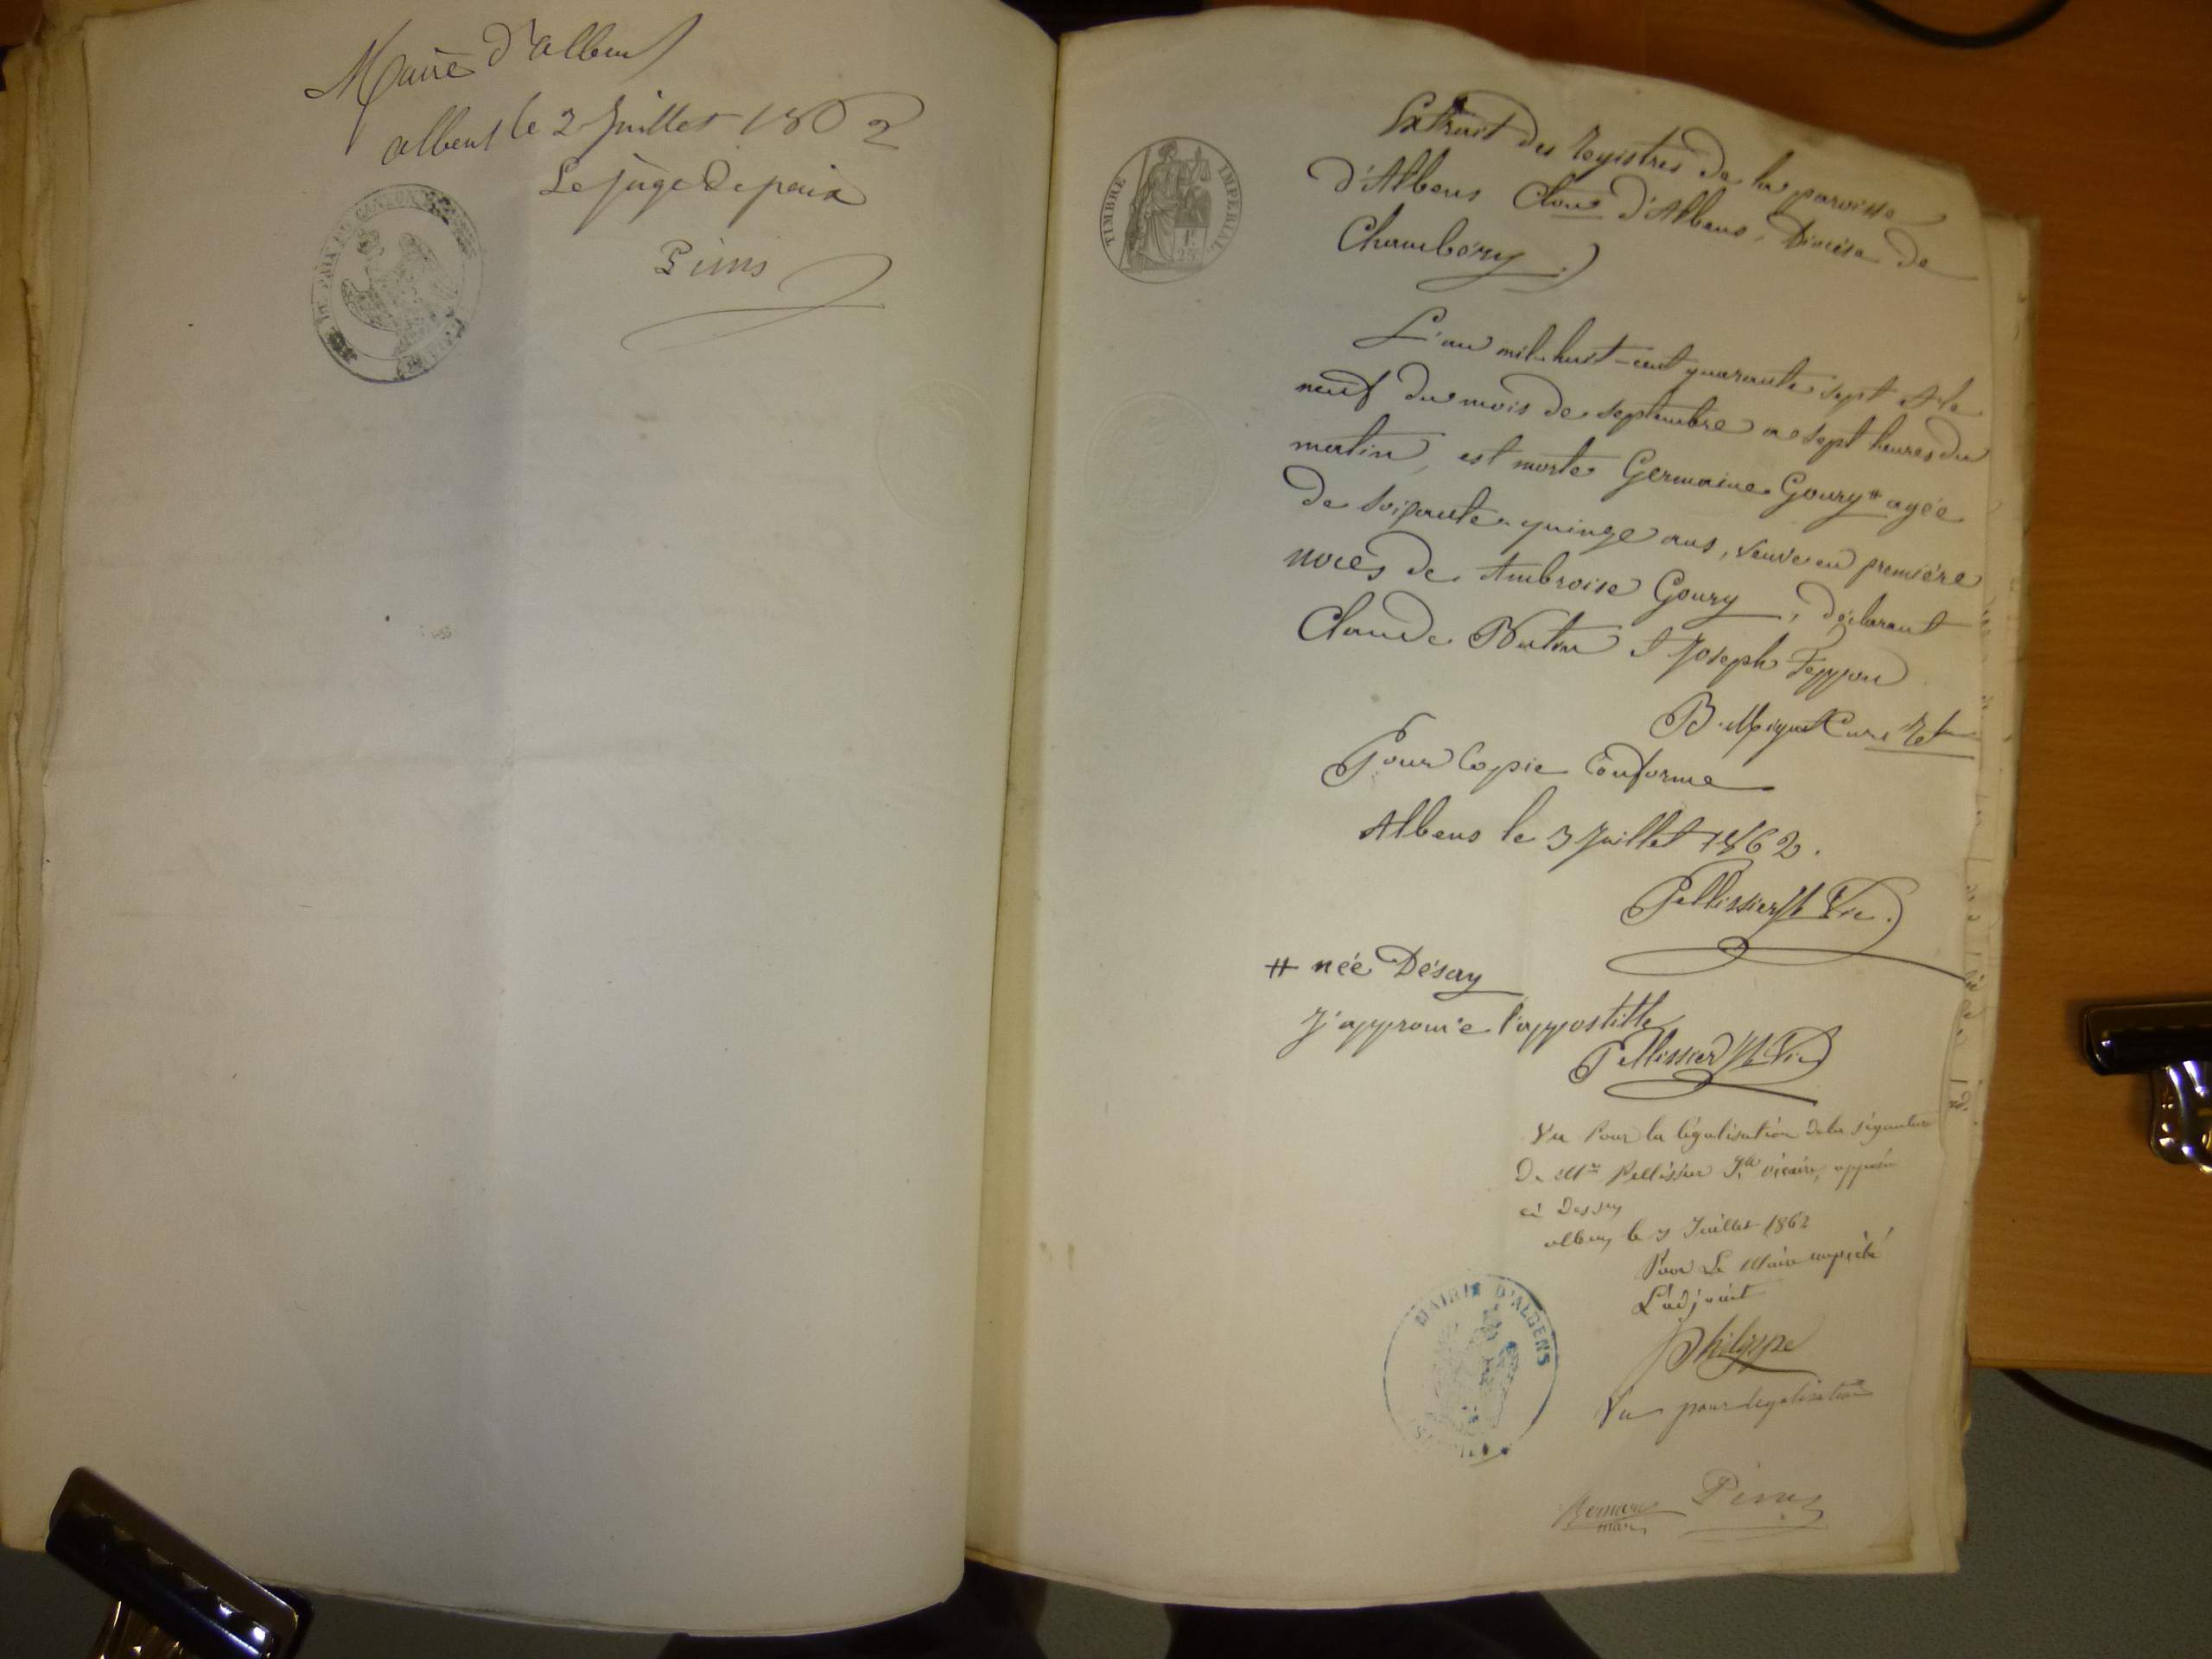 Maire d'albens
albens le 2 Juillet 1862
Le juge de paix
Pims
DE PAIX DU CANTON
TIMBRE IMPERIAL
1F
25
Extrait des Registres de la paroisse
d'Albens Cton d'Albens, Diocèse de
Chambéry.
L'an mil-huit-cent quarante sept & le
neuf du mois de septembre a sept heures du
matin, est morte Germaine Goury # agée
de soixante-quinze ans, veuve en première
noces de Ambroise Goury, déclarant
Claude et Joseph Feppon
B. Curé Rt
Pour Copie Conforme
Albens le 3 Juillet 1862.
Pellissier Vic.
# née Désay
J'approuve l'appostille
Pellissier Vic
Vu Pour la légalisation de la signature
De Mr Pellissier vicaire, apposée
ci Dessus
albens le 3 Juillet 1862
Pour Le Maire empêché
L'adjoint
Philippe
MAIRIE D'ALBENS
Vu pour légalisation
Pims